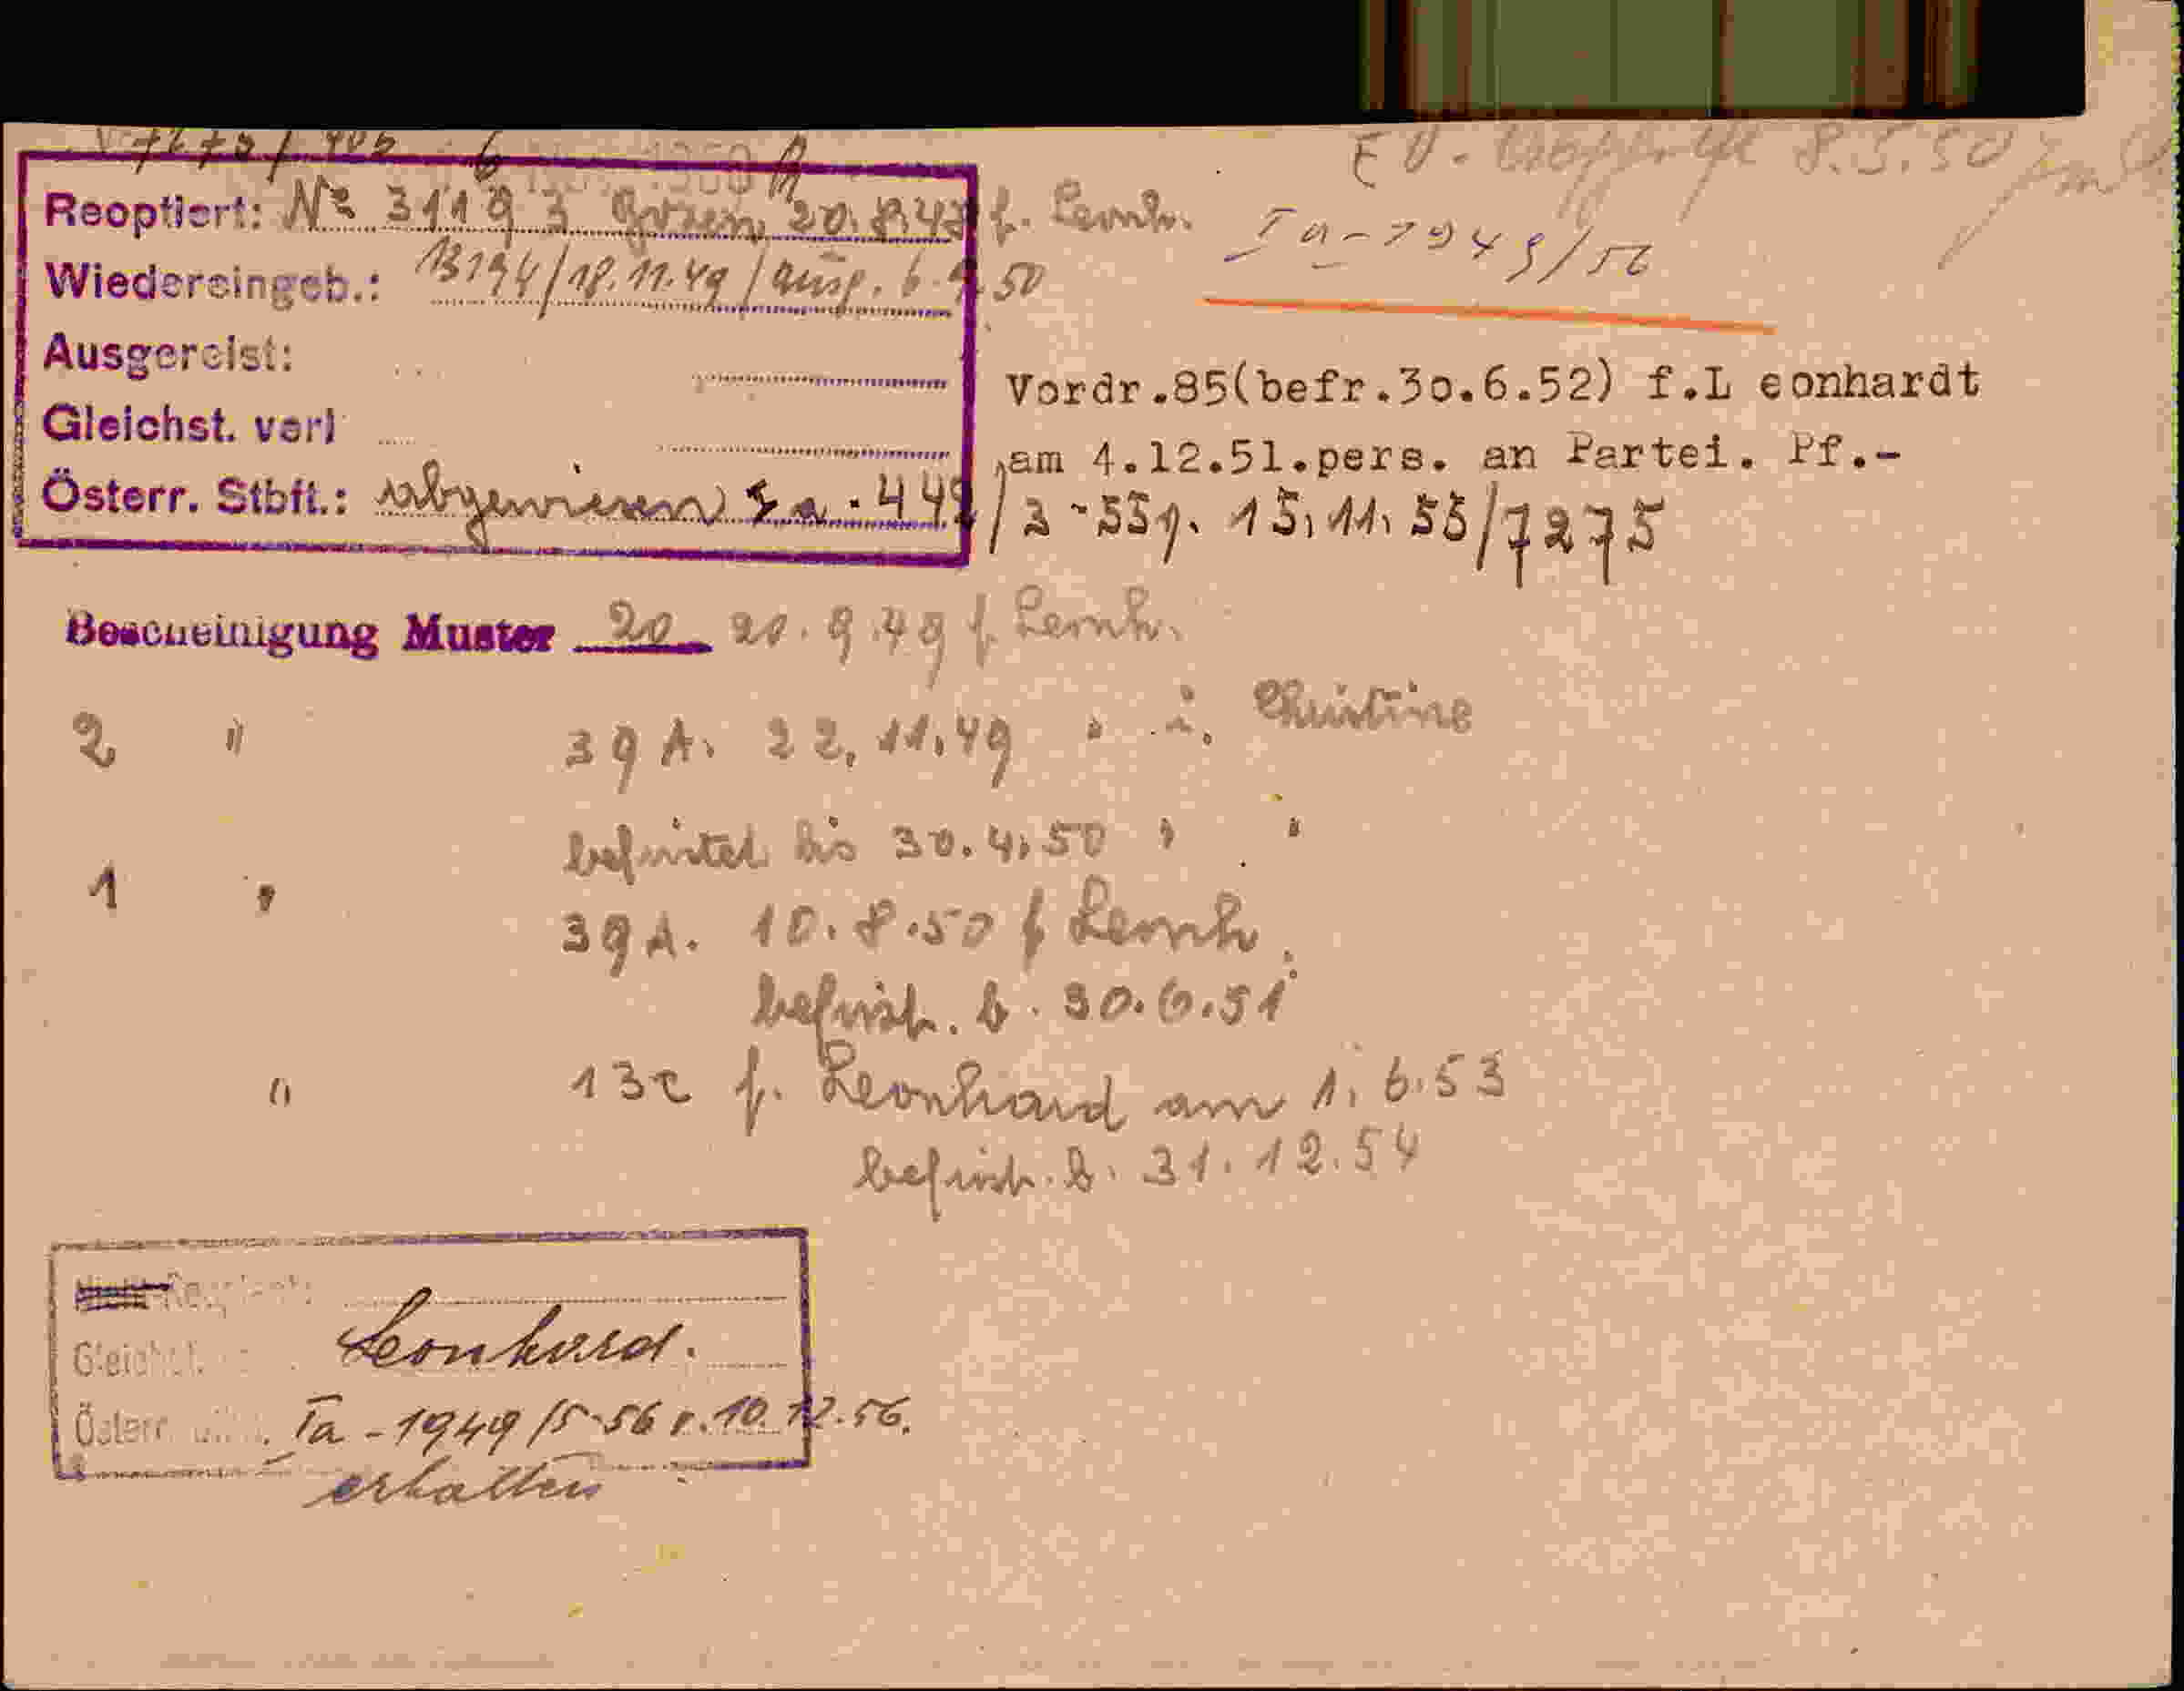 Reoptiert: Nº 31193 Bozen 20.8.48 f. Leonh.
Wiedereingeb.: B194/18.11.49/ausg. 6.9.50
Ia-1949/56
Ausgereist:
Vordr.85(befr.30.6.52) f.L eonhardt
Gleichst. verl
am 4.12.51.pers. an Partei. Pf.-
Österr. Stbft.: abgewiesen Ia-449/3-55 v. 15.11.55/7275
Bescheinigung Muster 20 20.9.49 f. Leonh.
2 " 39A. 22.11.49 " u. Christine
befristet bis 30.4.50 " "
1 " 39A. 10.8.50 f Leonh.
befrist. b. 30.6.51
" 13c f. Leonhard am 1.6.53
befrist. b. 31.12.54
Leonhard.
Österr. Ia-1949/5-56 v. 10.12.56.
erhalten